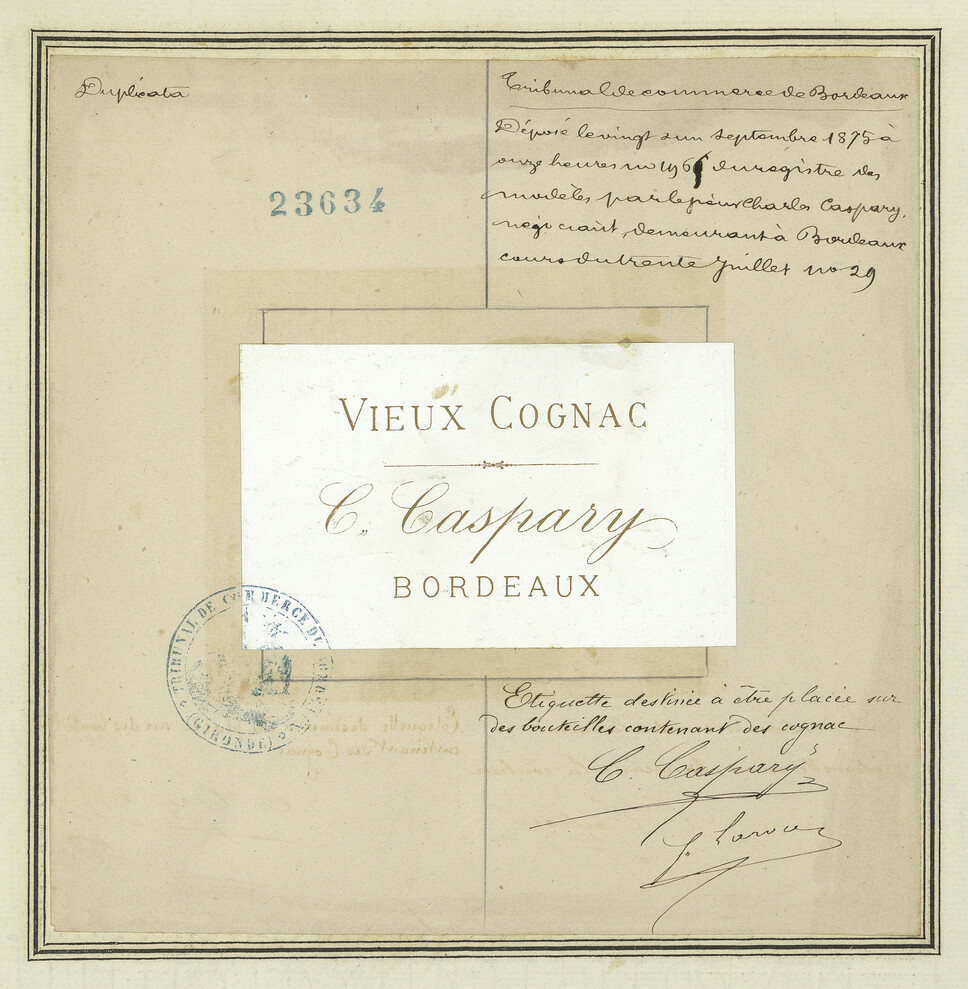 Duplicata
23634
Tribunal de commerce de Bordeaux
Déposé le vingt un septembre 1875 à
onze heures no 196 du registre des
modèles par le sieur Charles Caspary,
négociant, demeurant à Bordeaux
cours du trente Juillet no 29
VIEUX COGNAC
C. Caspary
BORDEAUX
TRIBUNAL DE COMMERCE DE BORDEAUX
(GIRONDE)
Etiquette destinée à être placée sur
des bouteilles contenant des cognac
C. Caspary